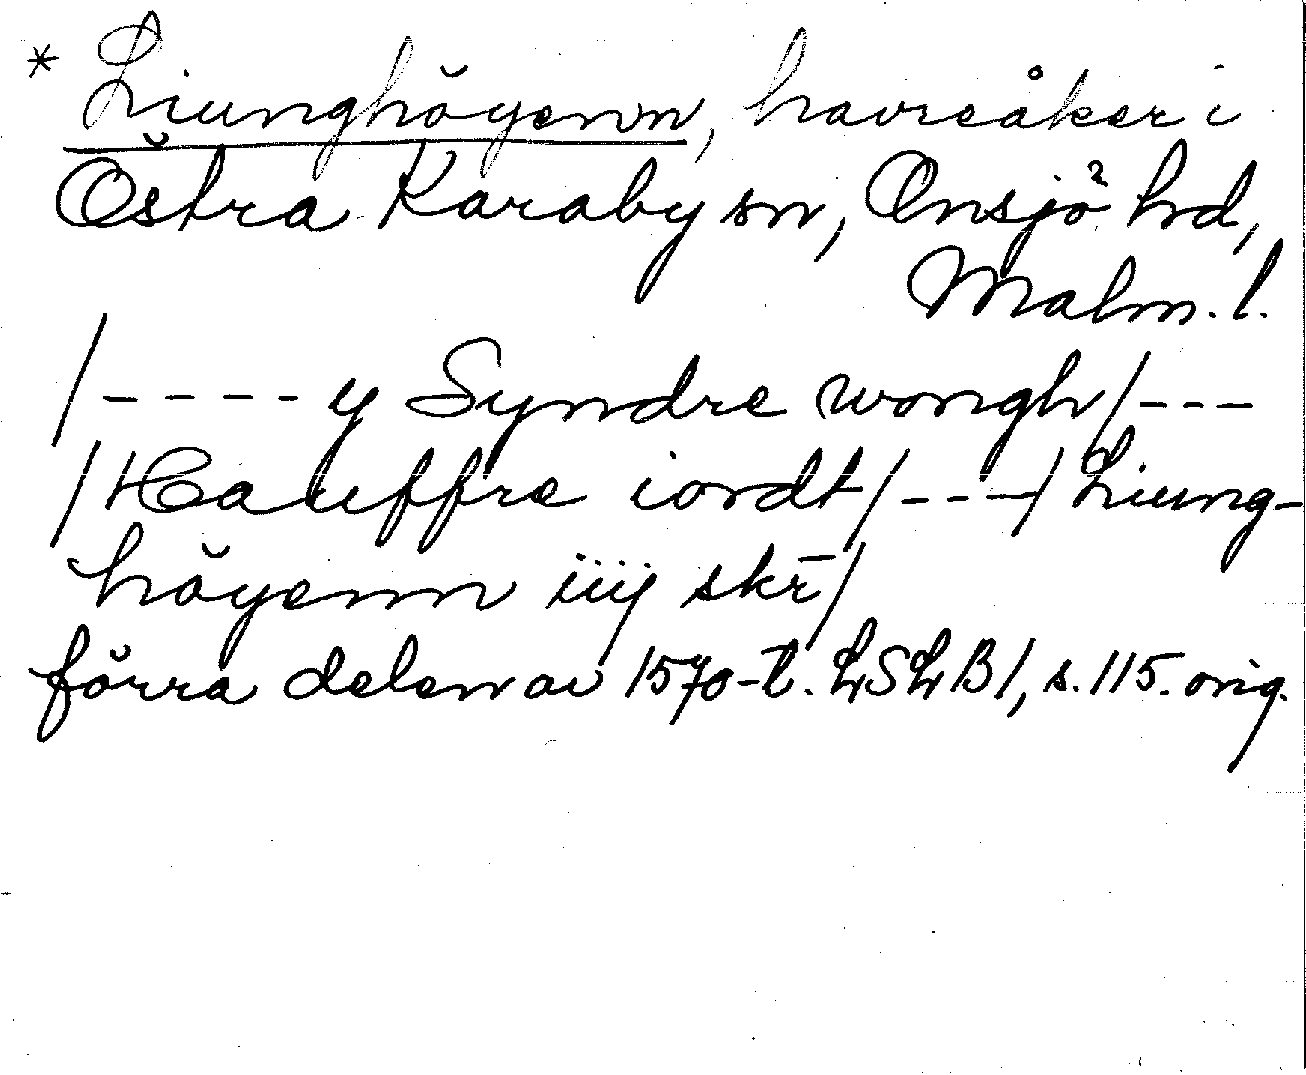 * Liunghöyenn, havreåker i
Östra Karaby sn, Onsjö hd,
Malm. l.
/----y Syndre wongh/---
/Hauffre iordt/---/Liung-
höyenn iiij skr̄/
förra delen av 1570-t. LSLB1, s. 115. orig.